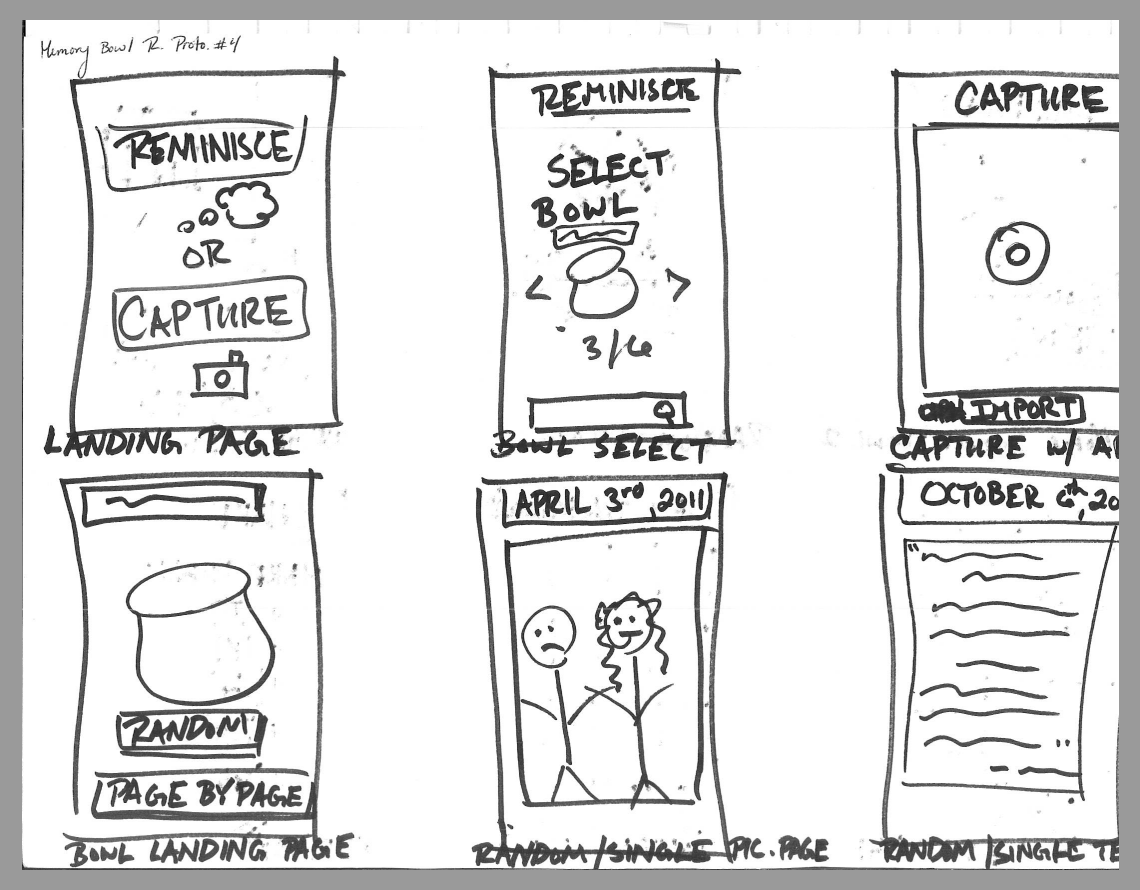 Memory Bowl R. Proto. #4
REMINISCE
OR
CAPTURE
LANDING PAGE
REMINISCE
SELECT
BOWL
< >
3/6
BOWL SELECT
CAPTURE
IMPORT
CAPTURE W/
RANDOM
PAGE BY PAGE
BOWL LANDING PAGE
APRIL 3rd, 2011
RANDOM/SINGLE PIC. PAGE
OCTOBER 6th, 20
"
"
RANDOM/SINGLE TE